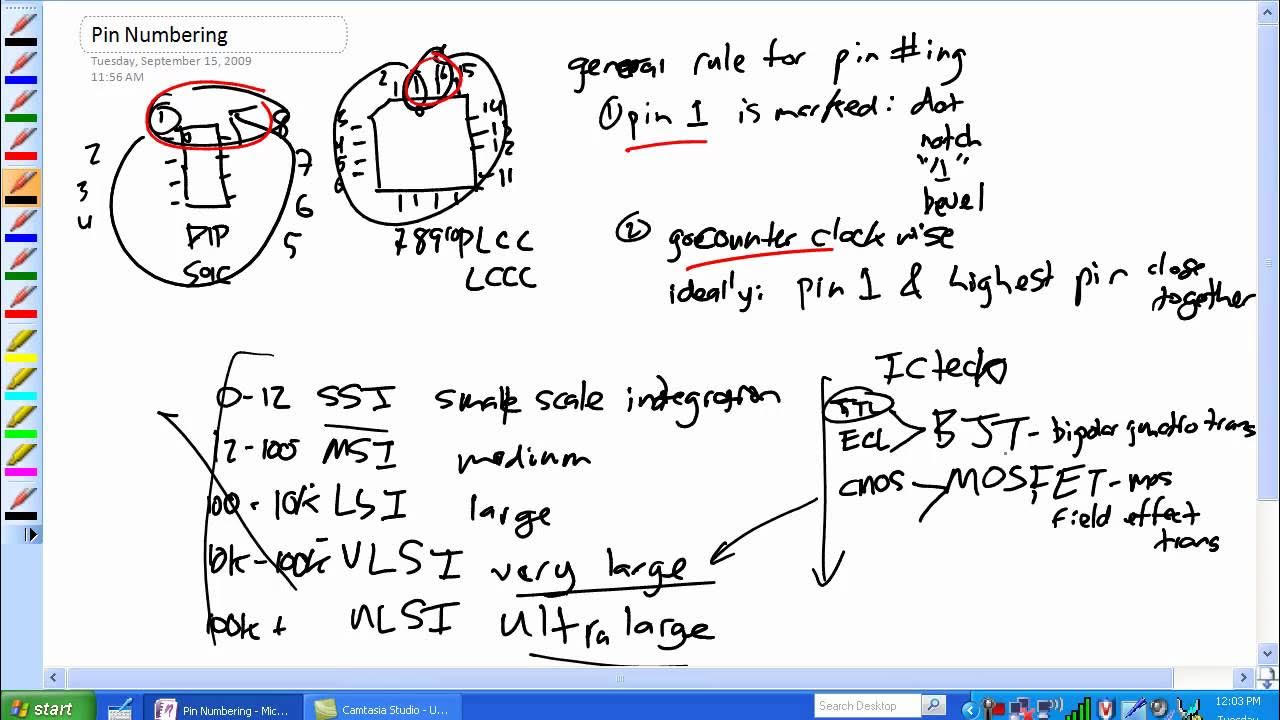 Pin Numbering
Tuesday, September 15, 2009
11:56 AM
general rule for pin #ing
① pin 1 is marked: dot
notch
"1"
bevel
② go counter clock wise
ideally: pin 1 & highest pin close together
1 8
2 7
3 6
4 5
DIP
SOIC
2 1 16 15
3 14
4 13
5 12
6 11
7 8 9 10 PLCC
LCCC
0-12 SSI small scale integration
12-100 MSI medium
100-10k LSI large
10k-100k VLSI very large
100k+ ULSI ultra large
IC tech
TTL
ECL BJT - bipolar trans
CMOS MOSFET - mos
field effect
trans
start
Pin Numbering - Mic...
Camtasia Studio - U...
Search Desktop
12:03 PM
Tuesday